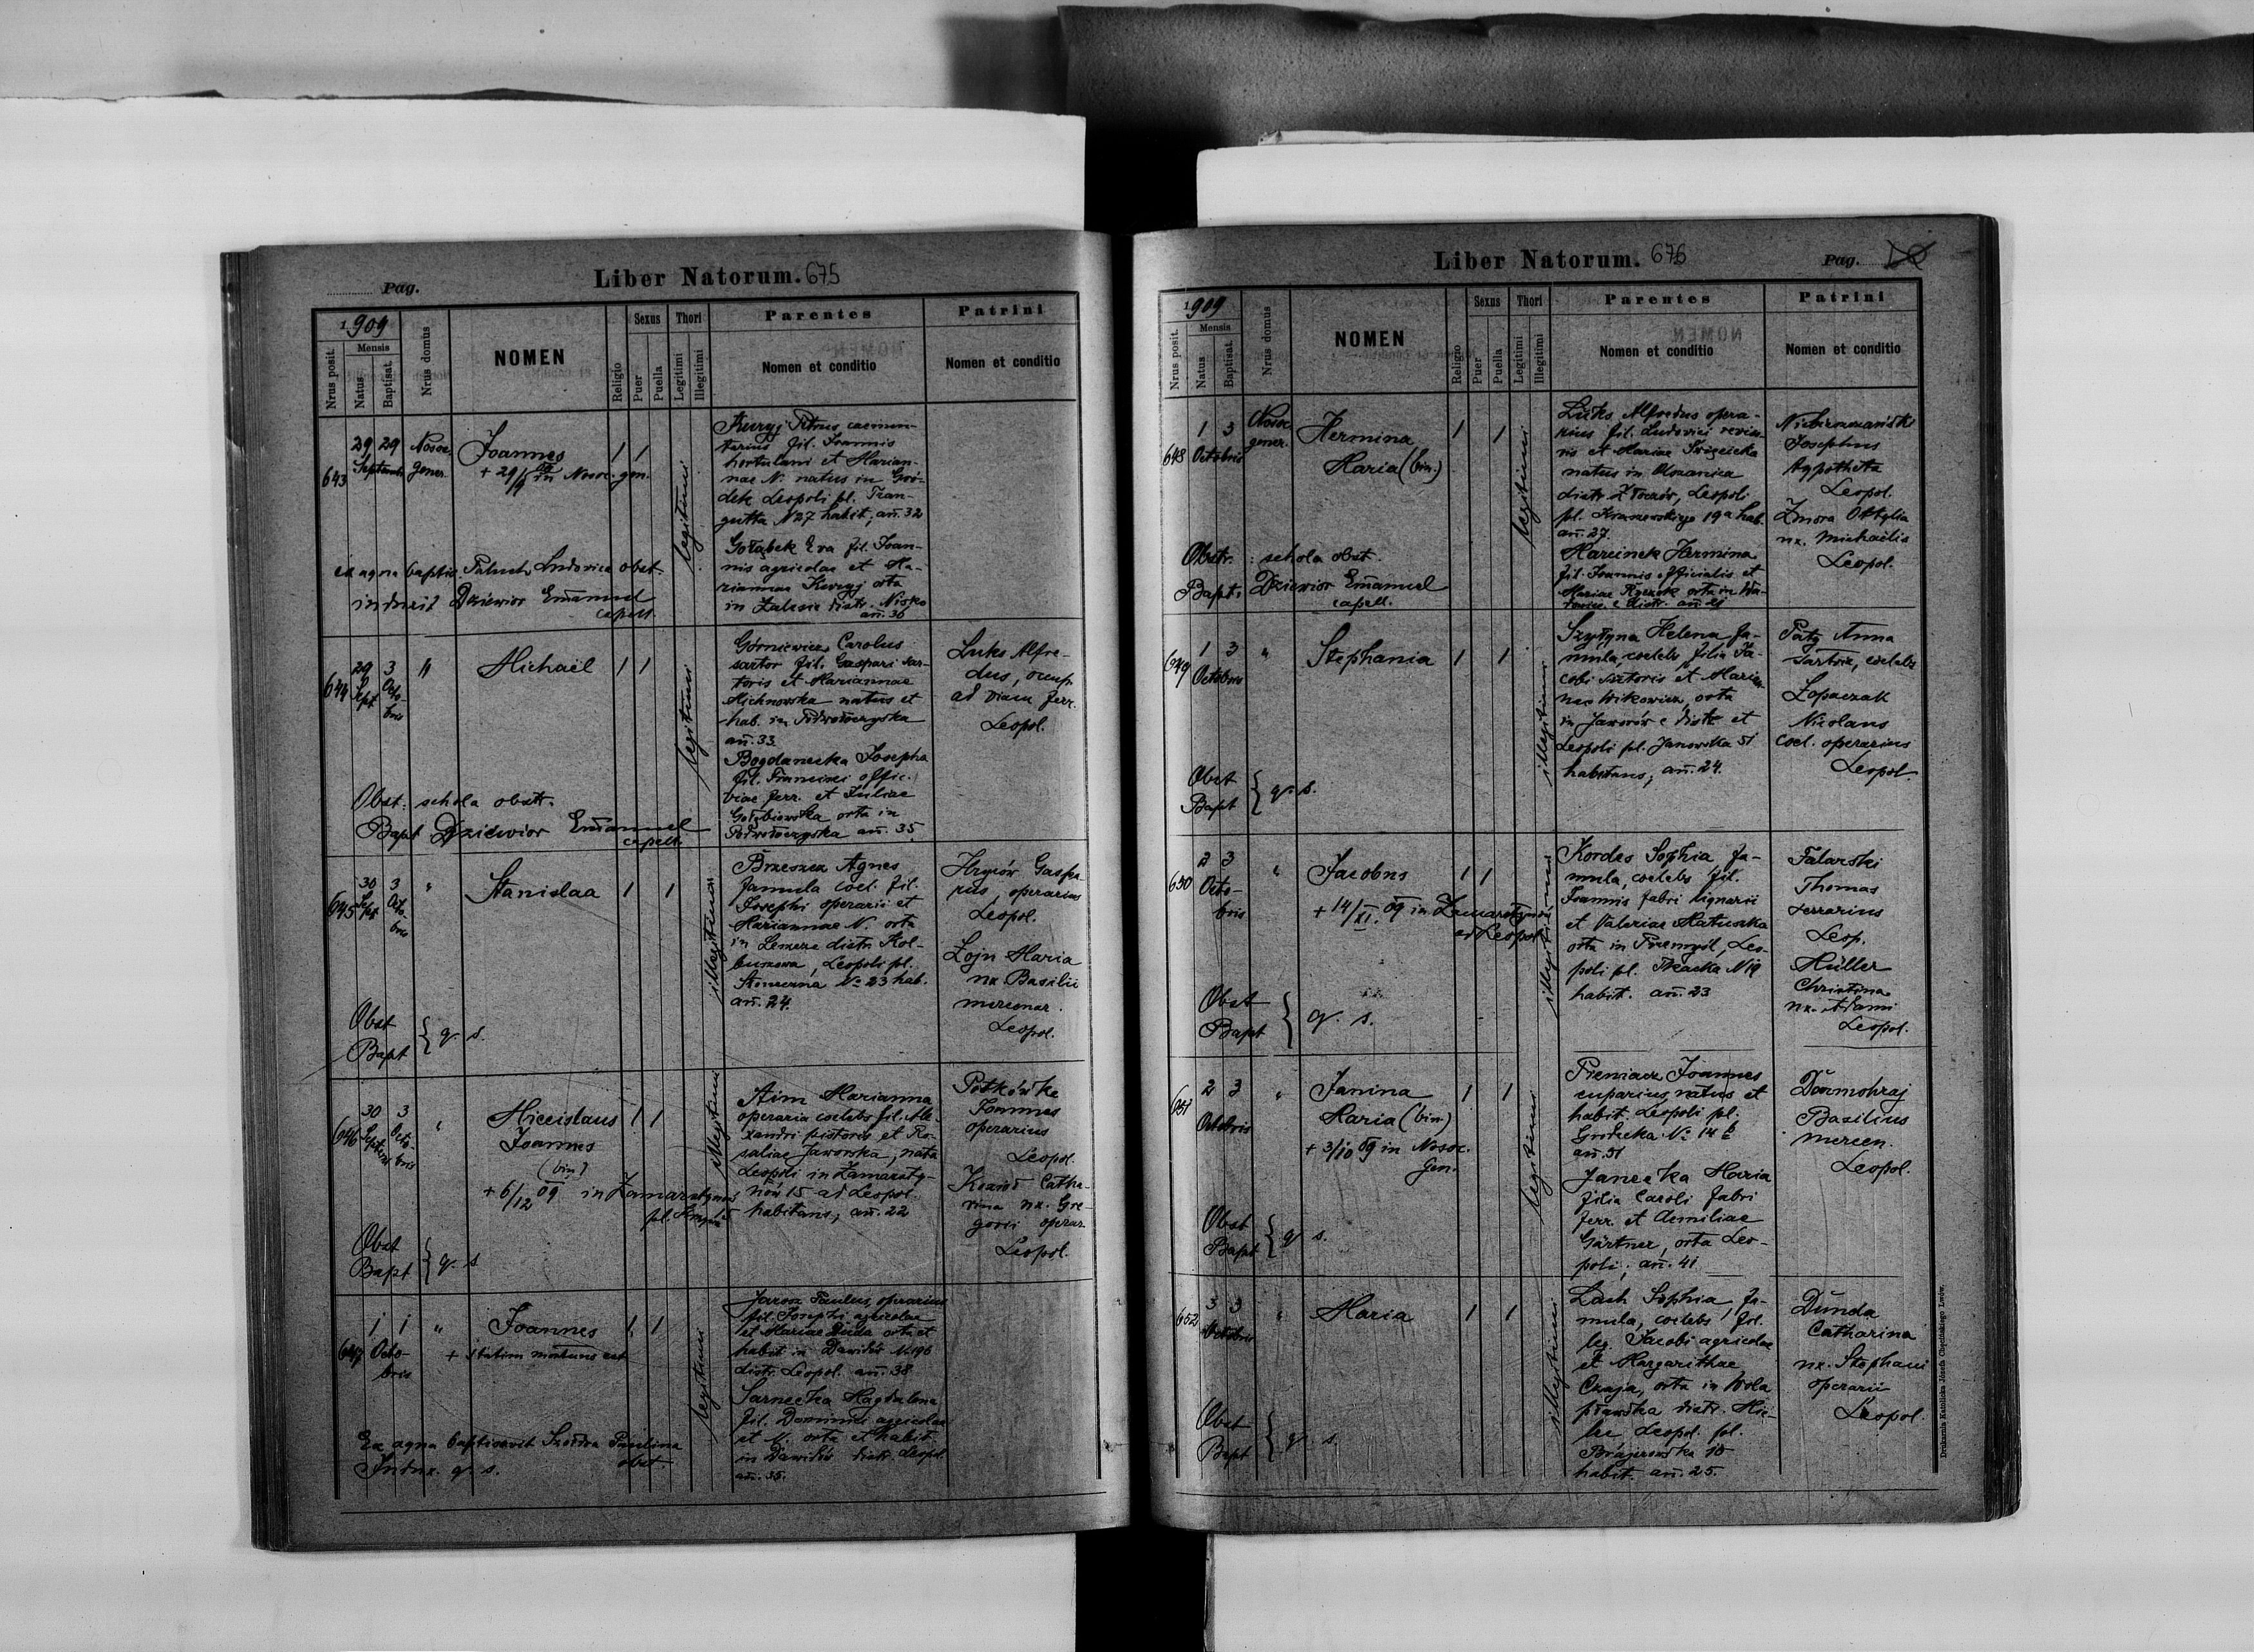 Pag.
Liber Natorum. 675
1909
Nrus posit.
Mensis
Natus
Baptisat.
Nrus domus
NOMEN
Religio
Sexus
Puer
Puella
Thori
Legitimi
Illegitimi
Parentes
Nomen et conditio
Patrini
Nomen et conditio
643
29 29
Septembr
Nosoc.
gener.
Joannes
+ 29/9 09 in Nosoc. gen.
1 1
legitimi
Kuryj Petrus caemen-
tarius fil. Joannis
hortulani et Marian-
nae N. natus in Gró-
dek Leopoli pl. Trau-
gutta N 27 habit, an. 32
Gołąbek Eva fil. Joan-
nis agricolae et Ma-
riannae Kuryj orta
in Zalesie distr. Nisko
an. 36
ex aqua baptis. Paluch Ludovica obst.
induxit Dziewior Emanuel
capell.
644
29 3
Sept Octo-
bris
"
Michaël
1 1
legitimi
Górniewicz Carolus
sartor fil. Gaspari sar-
toris et Mariannae
Michnowska natus et
hab. in Podwołoczyska
an. 33
Bogdanecka Josepha
fil. Francisci offic.
viae ferr. et Juliae
Gołębiowska orta in
Podwołoczyska an. 35
Luks Alfre-
dus, occup.
ad viam ferr.
Leopol.
Obst: schola obstr.
Bapt Dziewior Emanuel
capell.
645
30 3
Sept Octo-
bris
"
Stanislaa
1 1
illegitima
Brzeszcz Agnes
famula coel. fil.
Josephi operarii et
Mariannae N. orta
in distr. Kol-
buszowa, Leopoli pl.
Słoneczna No 23 hab.
an. 24.
Hryców Gaspa-
rus, operarius
Leopol.
Łojn Maria
nx Basilii
mercenar.
Leopol.
Obst
Bapt } q. s.
646
30 3
Septembris Octo-
bris
"
Miecislaus
Joannes
(bin)
+ 6/12 09 in Zamarstynów
1 1
illegitimi
Aim Marianna
operaria coelebs fil. Ale-
xandri pistoris et Ro-
saliae Jaworska, nata
Leopoli in Zamarsty-
nów 15 ad Leopol.
habitans, an. 22
Potkówka
Joannes
operarius
Leopol.
Kozioł Catha-
rina nx. Gre-
gorii operar.
Leopol.
Obst
Bapt } q. s
647
1 1
Octo-
bris
"
Joannes
+ statim mortuus est
1 1
legitimi
Jarosz Paulus, operarius
fil. Josephi agricolae
et Mariae Duda orta et
habit in Dawidów N 196
distr. Leopol. an. 38
Sarnecka Magdalena
fil. Dominici agricolae
et N. orta et habit
in Dawidów distr. Leopol.
an. 35.
Ex aqua baptisavit Paulina
obst.
Indux. q. s.
Liber Natorum. 676
Pag.
1909
Nrus posit.
Mensis
Natus
Baptisat.
Nrus domus
NOMEN
Religio
Sexus
Puer
Puella
Thori
Legitimi
Illegitimi
Parentes
Nomen et conditio
Patrini
Nomen et conditio
648
1 3
Octobris
Nosoc
gener.
Hermina
Maria (bin.)
1 1
legitimi
Luks Alfredus opera-
rius fil. Ludovici
et Mariae
natus in
distr. Złoczów, Leopoli
pl. Kraszewskiego 19a hab.
an. 27.
Marcinek Hermina
fil. Joannis officialis et
Mariae orta in
distr. an. 21
Josephus
Leopol.
Zmora Ottylia
nx. Michaelis
Leopol.
Obstr. : schola obst.
Bapt. Dziewior Emanuel
capell.
649
1 3
Octobris
"
Stephania
1 1
illegitimi
Szyłyna Helena fa-
mula, coelebs filia Ja-
cobi sutoris et Marian-
nae Witkowicz, orta
in Jaworów e distr et
Leopoli pl. Janowska 51
habitans, an. 24.
Patz Anna
sartrix, coelebs
Łopaczak
Nicolaus
coel. operarius
Leopol.
Obst
Bapt } q. s.
650
2 3
Octo-
bris
"
Jacobus
+ 14/XI. 09 in Zamarstynów
ad Leopol
1 1
illegitimus
Kordas Sophia fa-
mula, coelebs fil.
Joannis fabri lignarii
et Valeriae Matuszka
orta in Przemyśl, Leo-
poli pl. Tkacka N 19
habit. an. 23
Talarski
Thomas
serrarius
Leop.
Müller
Christina
nx. Adami
Leopol.
Obst
Bapt } q. s.
651
2 3
Octobris
"
Janina
Maria (bin)
+ 3/10 09 in Nosoc.
Gen.
1 1
legitimi
Pieniacz Joannes
cuparius, natus et
habit. Leopoli pl.
Gródecka No 14 b
an. 51
Janecka Maria
filia Caroli fabri
ferr. et Aemiliae
Gärtner, orta Leo-
poli, an. 41
Dormohraj
Basilius
mercen.
Leopol.
Obst
Bapt } q. s.
652
3 3
Octobris
"
Maria
1 1
illegitimi
Lach Sophia, fa-
mula, coelebs, fil.
leg. Jacobi agricolae
et Margarithae
Czaja, orta in Wola
pławska distr. Mie-
lec Leopol. pl.
Brajerowska 10
habit. an. 25.
Dunda
Catharina
nx. Stephani
operarii
Leopol.
Obst
Bapt } q. s.
Drukarnia Katolicka Józefa Chęcińskiego Lwów.